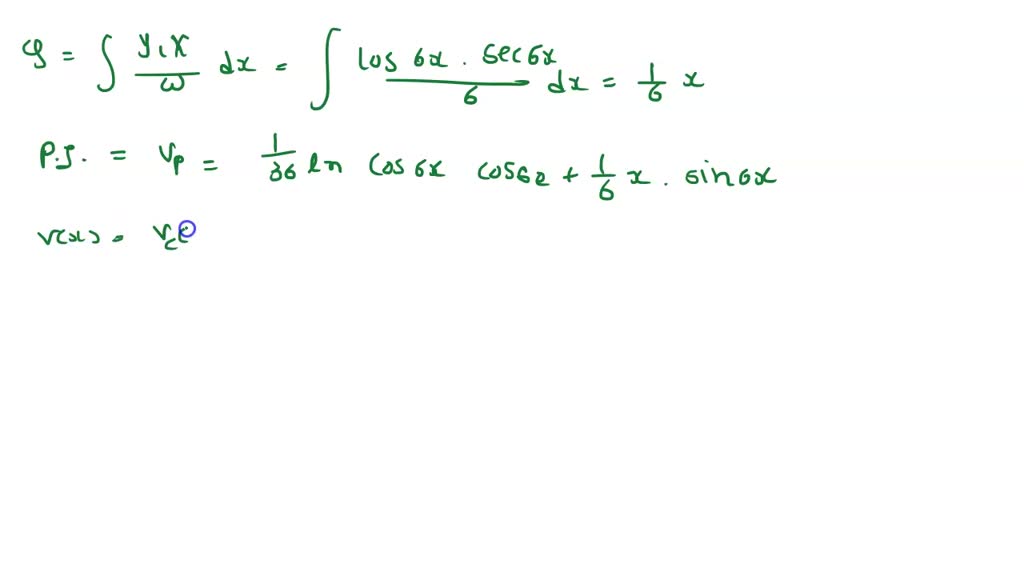 φ = ∫ y₁X / ω dx = ∫ cos 6x . sec 6x / 6 dx = 1/6 x
P.I. = Vp = 1/36 ln cos 6x cos 6x + 1/6 x . sin 6x
v(x) = Vc(